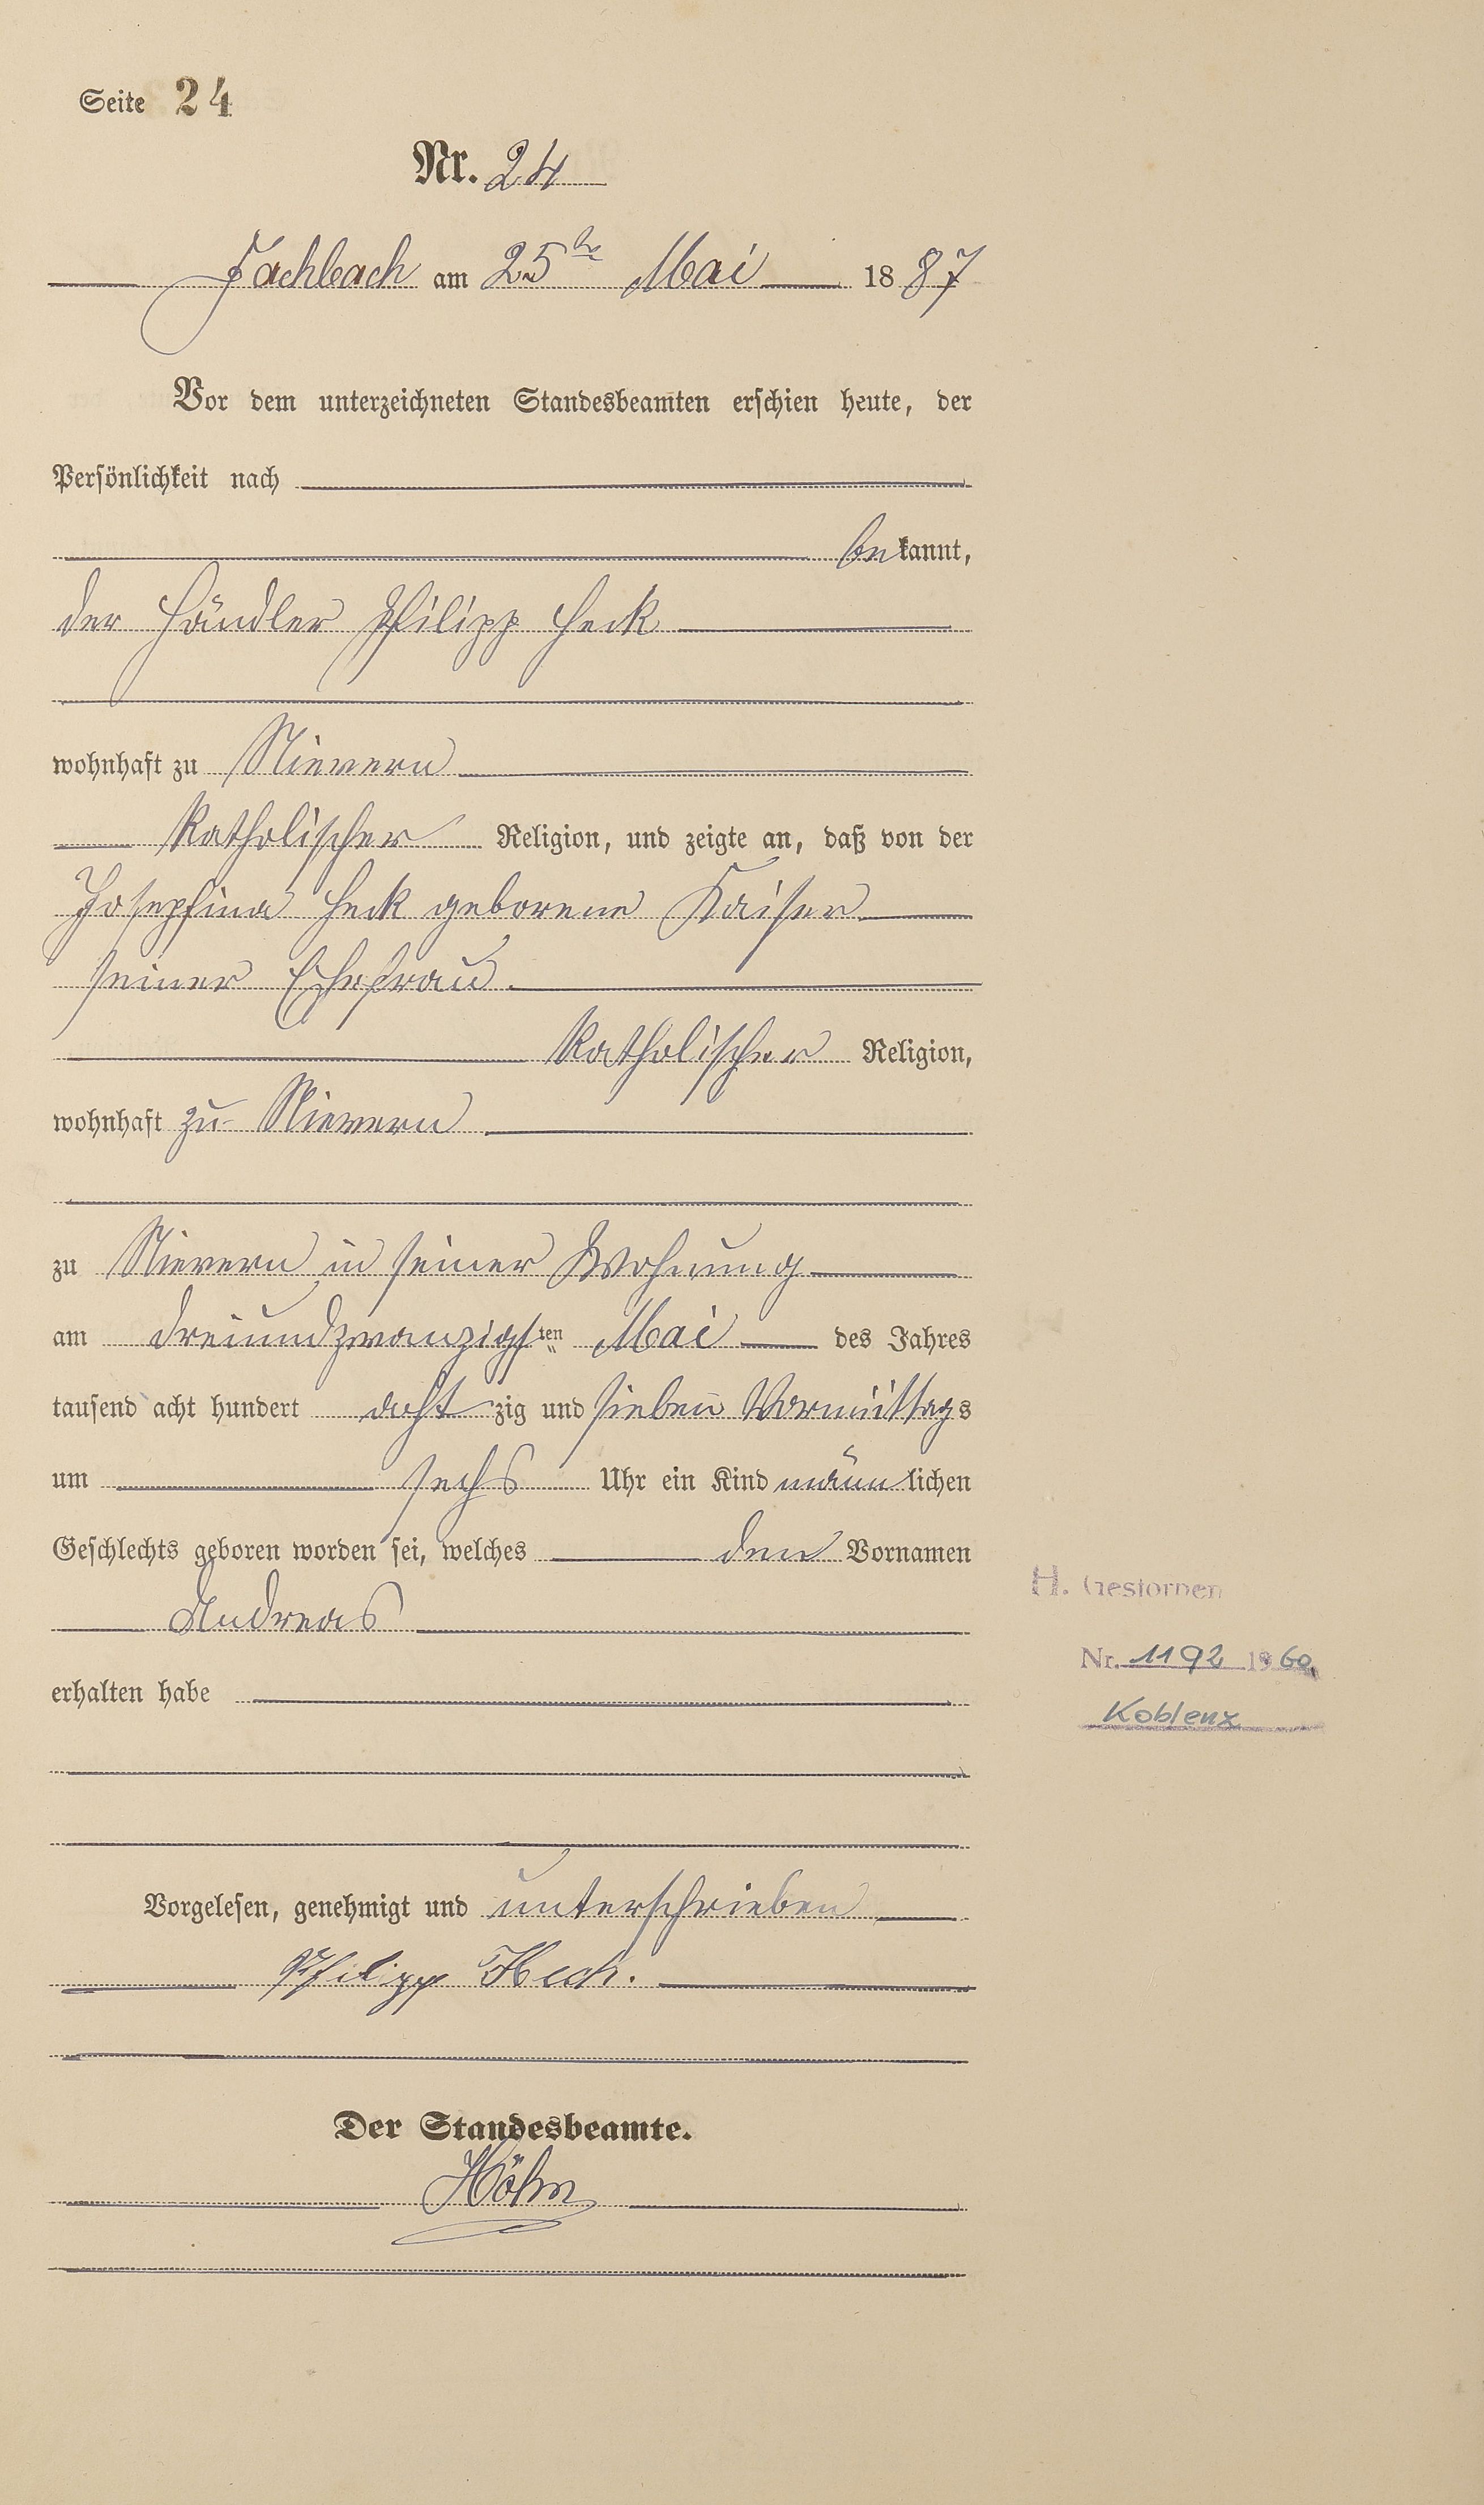 Seite 24
Nr. 24
Fachbach am 25ten Mai 1887
Vor dem unterzeichneten Standesbeamten erschien heute, der
Persönlichkeit nach
bekannt,
der Händler Philipp Heck
wohnhaft zu Nievern
katholischer Religion, und zeigte an, daß von der
Josephina Heck geborene Kaiser
seiner Ehefrau.
katholischer Religion,
wohnhaft zu Nievern
zu Nievern in seiner Wohnung
am dreiundzwanzigsten Mai des Jahres
tausend acht hundert achtzig und sieben Vormittags
um sechs Uhr ein Kind männlichen
Geschlechts geboren worden sei, welches den Vornamen
Andreas
H. Gestorben
Nr. 1192 1960
erhalten habe
Koblenz
Vorgelesen, genehmigt und unterschrieben
Philipp Heck.
Der Standesbeamte.
Höhn